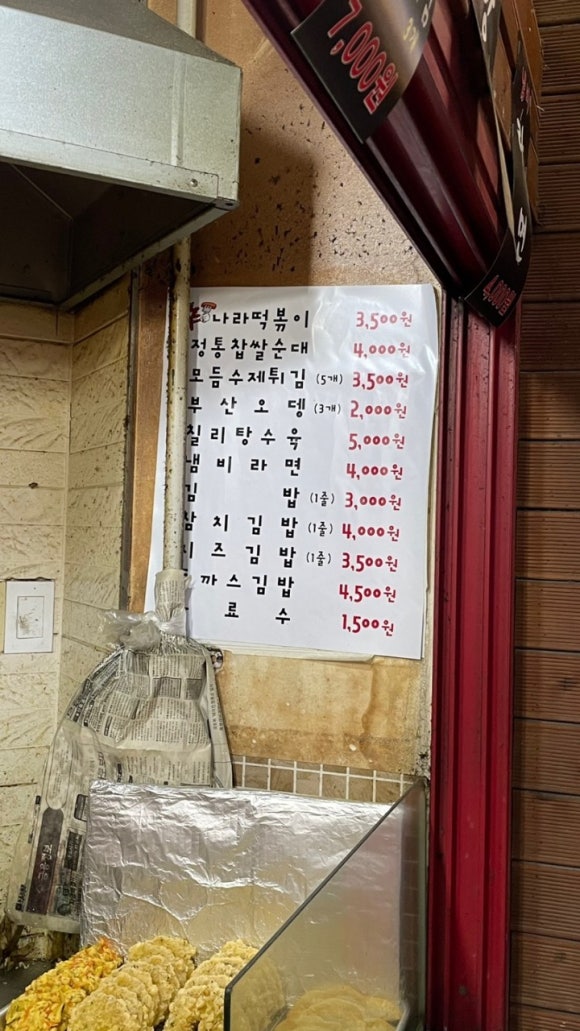 7,000원
4,000원
나라떡볶이 3,500원
정통찹쌀순대 4,000원
모듬수제튀김 (5개) 3,500원
부산오뎅 (3개) 2,000원
칠리탕수육 5,000원
냄비라면 4,000원
김밥 (1줄) 3,000원
참치김밥 (1줄) 4,000원
치즈김밥 (1줄) 3,500원
까스김밥 4,500원
료수 1,500원